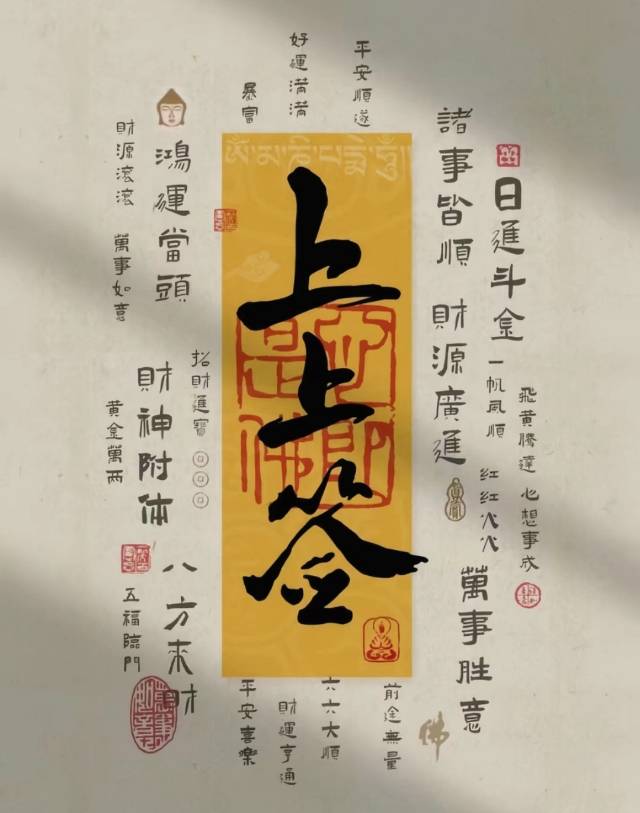 好運滿滿
平安順遂
暴富
諸事皆順
日進斗金
財源滾滾
鴻運當頭
萬事如意
ༀ་མ་ཎི་པདྨེ་ཧཱུྃ
上上签
財源廣進
一帆風順
飛黃騰達
心想事成
紅紅火火
招財進寶
財神附体
黃金萬兩
心即是佛
八方來財
五福臨門
萬事胜意
平安喜樂
財運亨通
六六大順
前途無量
佛
萬事如意